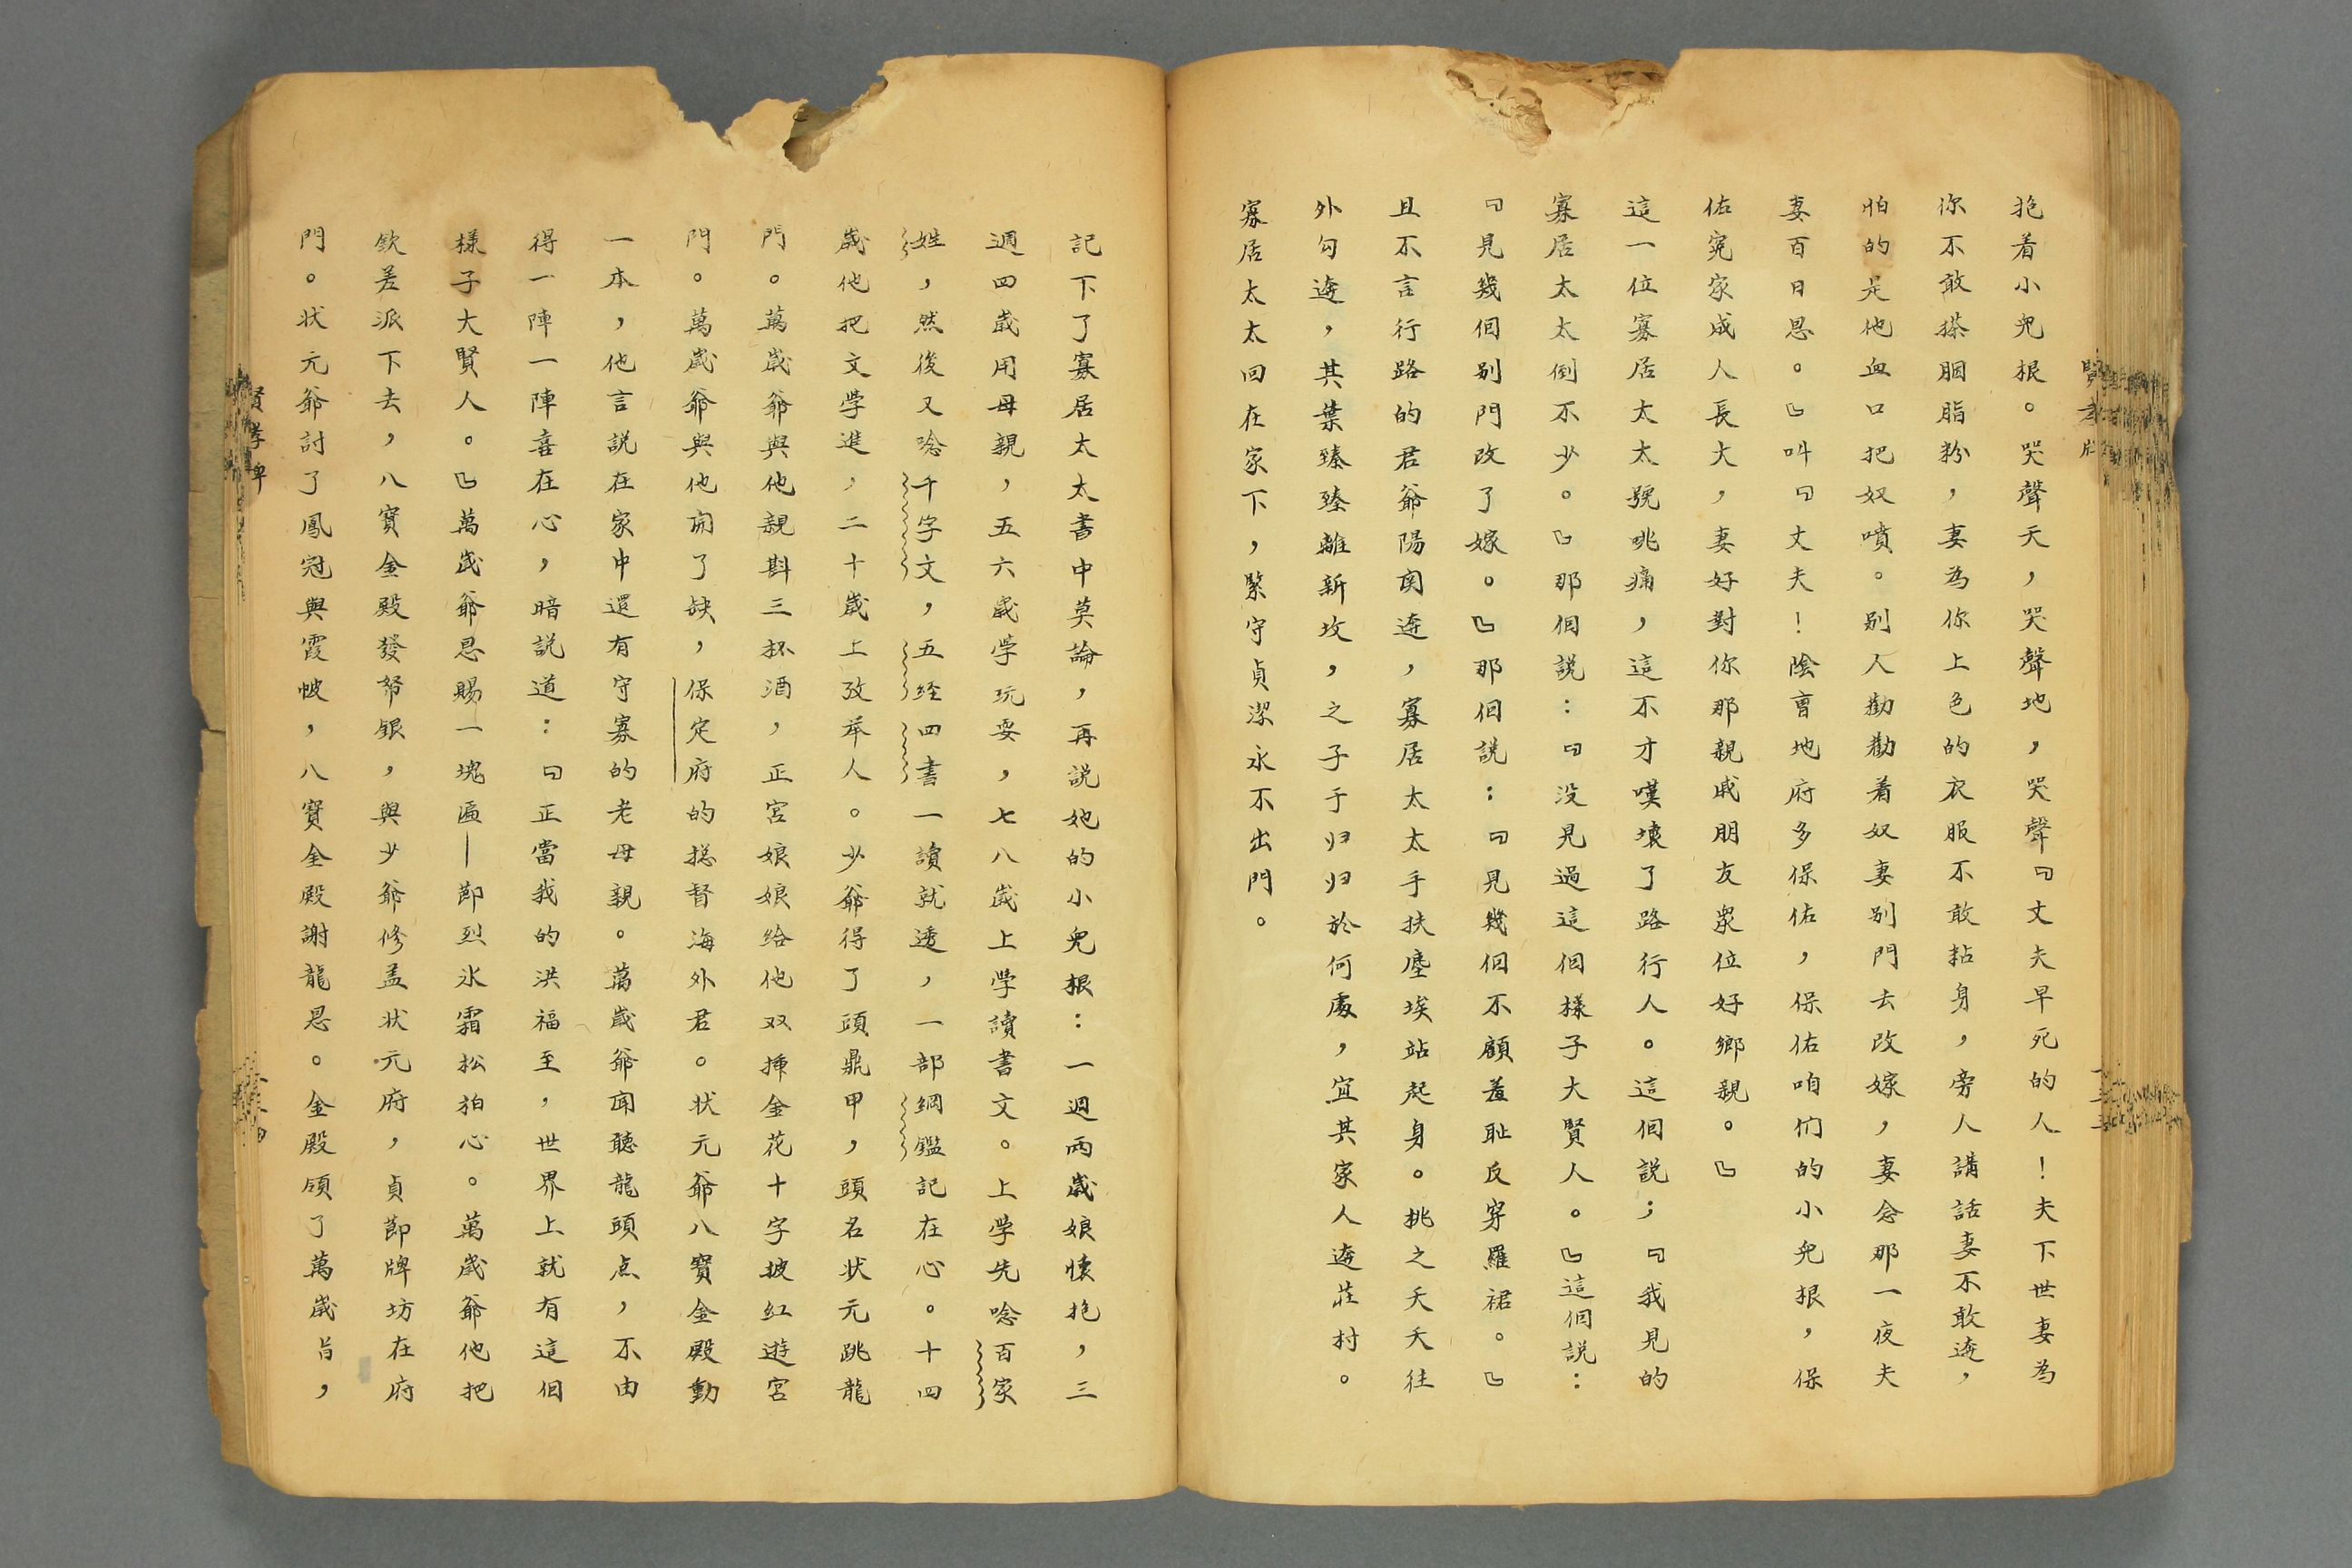 抱着小兒根。哭聲天，哭聲地，哭聲『丈夫早死的人！夫下世妻為
你不敢搽胭脂粉，妻為你上色的衣服不敢粘身，旁人講話妻不敢遊，
怕的是他血口把奴噴。別人勸勸着奴妻別門去改嫁，妻念那一夜夫
妻百日恩。』叫『丈夫！陰曹地府多保佑，保佑咱们的小兒根，保
佑寃家成人長大，妻好對你那親戚朋友衆位好鄉親。』
這一位寡居太太號咷痛，這不才嘆壞了路行人。這個説；『我見的
寡居太太倒不少。』那個説：『没見過這個樣子大賢人。』這個説：
『見幾個别門改了嫁。』那個説：『見幾個不顧羞耻反穿羅裙。』
且不言行路的君爺陽関连，寡居太太手扶塵埃站起身。挑之夭夭往
外勾遊，其葉臻臻離新坟，之子于归归於何處，宜其家人遊莊村。
寡居太太回在家下，緊守貞潔永不出門。
記下了寡居太太書中莫論，再説她的小兒根：一週兩歲娘懷抱，三
週四歲用母親，五六歲学玩耍，七八歲上学讀書文。上学先唸百家
姓，然後又唸千字文，五经四書一讀就透，一部綱鑑記在心。十四
歲他把文学進，二十歲上攷举人。少爺得了頭鼎甲，頭名状元跳龍
門。萬歲爺與他親斟三杯酒，正宮娘娘给他双揷金花十字披红遊宮
門。萬歲爺與他開了缺，保定府的総督海外君。状元爺八寶金殿動
一本，他言説在家中還有守寡的老母親。萬歲爺闻聽龍頭点，不由
得一陣一陣喜在心，暗説道：『正當我的洪福至，世界上就有這個
樣子大賢人。』萬歲爺恩賜一塊匾—節烈冰霜松柏心。萬歲爺他把
欽差派下去，八寶金殿發帑銀，與少爺修盖状元府，貞節牌坊在府
門。状元爺討了鳳冠與霞帔，八寶金殿謝龍恩。金殿领了萬歲旨，
賢孝牌